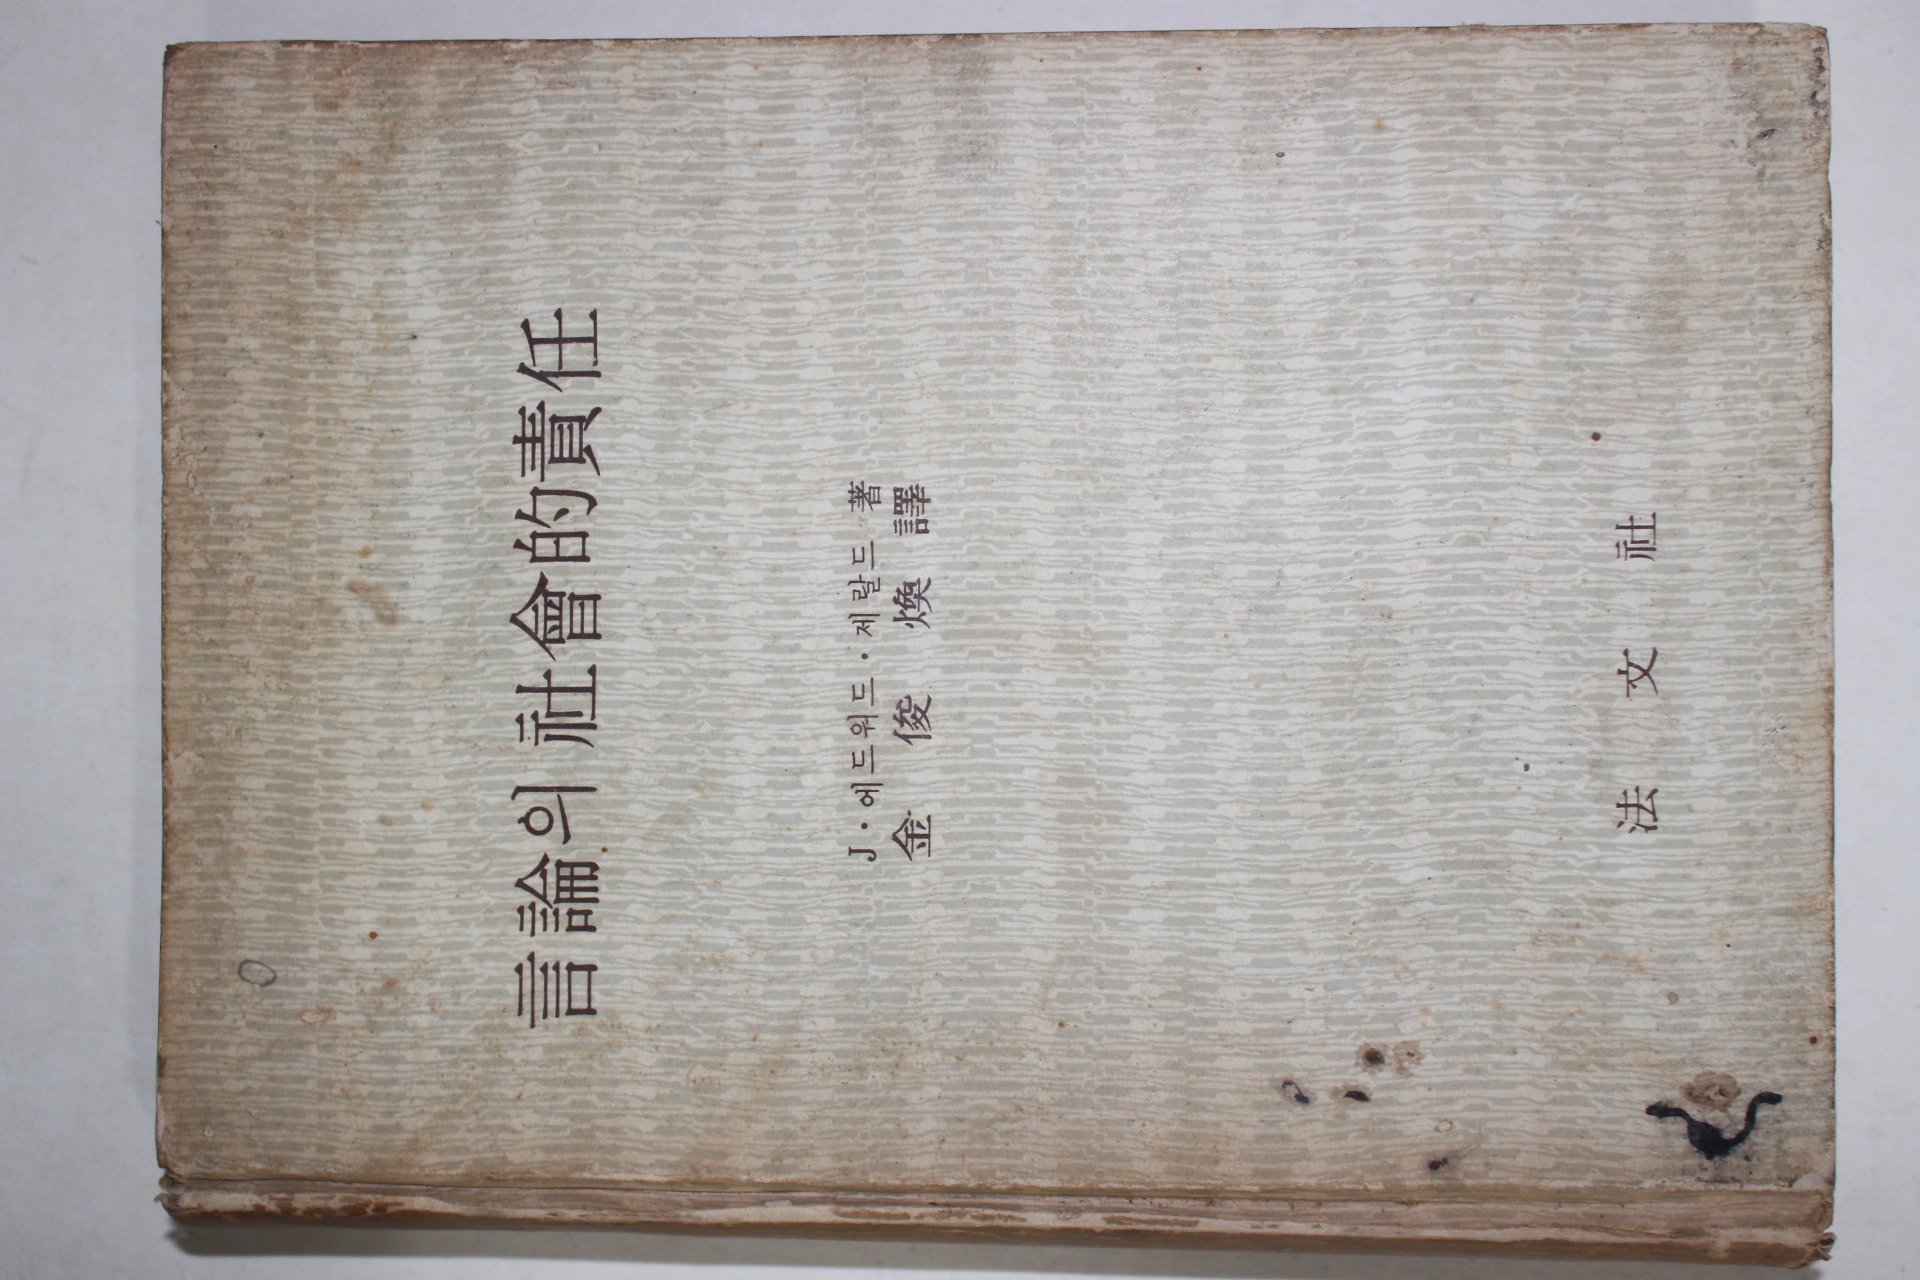 言論의 社會的責任
J·에드워드·제랄드 著
金俊煥 譯
法文社